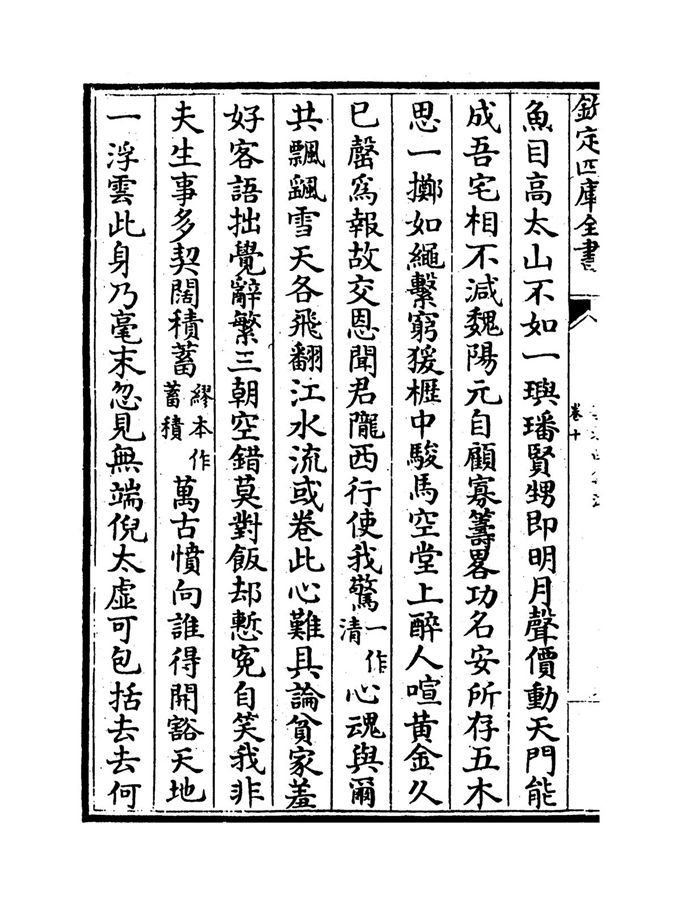 欽定四庫全書
卷十
魚目高太山不如一璵璠賢甥即明月聲價動天門能
成吾宅相不減魏陽元自顧寡籌畧功名安所存五木
思一擲如繩繫窮猨櫪中駿馬空堂上醉人喧黄金久
已罄為報故交恩聞君隴西行使我驚一作清心魂與爾
共飄颻雪天各飛翻江水流或卷此心難具論貧家羞
好客語拙覺辭繁三朝空錯莫對飯却慙寃自笑我非
夫生事多契闊積蓄繆本作蓄積萬古憤向誰得開豁天地
一浮雲此身乃毫末忽見無端倪太虛可包括去去何